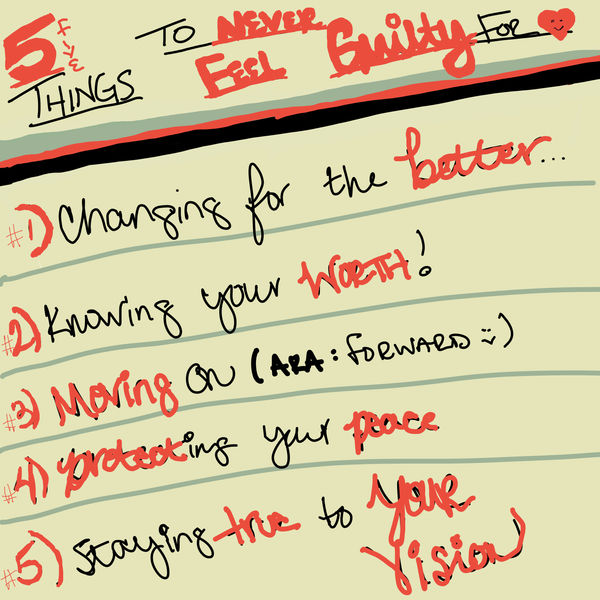 5 five THINGS TO NEVER FEEL Guilty FOR
#1) Changing for the better...
#2) Knowing your WORTH!
#3) Moving ON (AKA: FORWARD :)
#4) protecting your peace
#5) Staying true to YOUR Vision